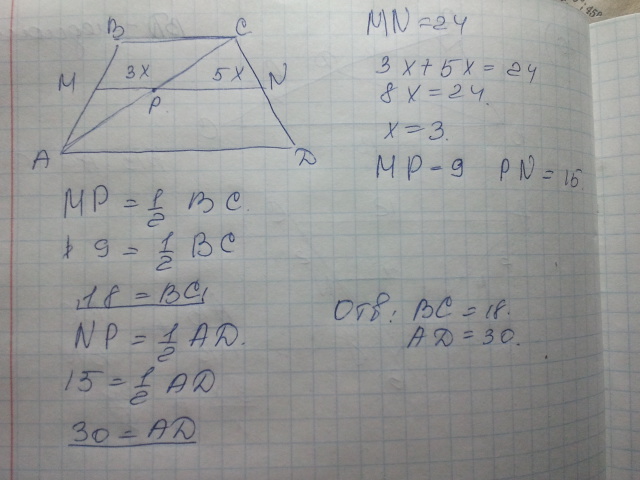 B C
M 3x 5x N
P.
A D
MN = 24
3x + 5x = 24
8x = 24.
x = 3.
MP = 9 PN = 15
MP = 1/2 BC.
9 = 1/2 BC
18 = BC
NP = 1/2 AD.
15 = 1/2 AD
30 = AD
Отв: BC = 18.
AD = 30.